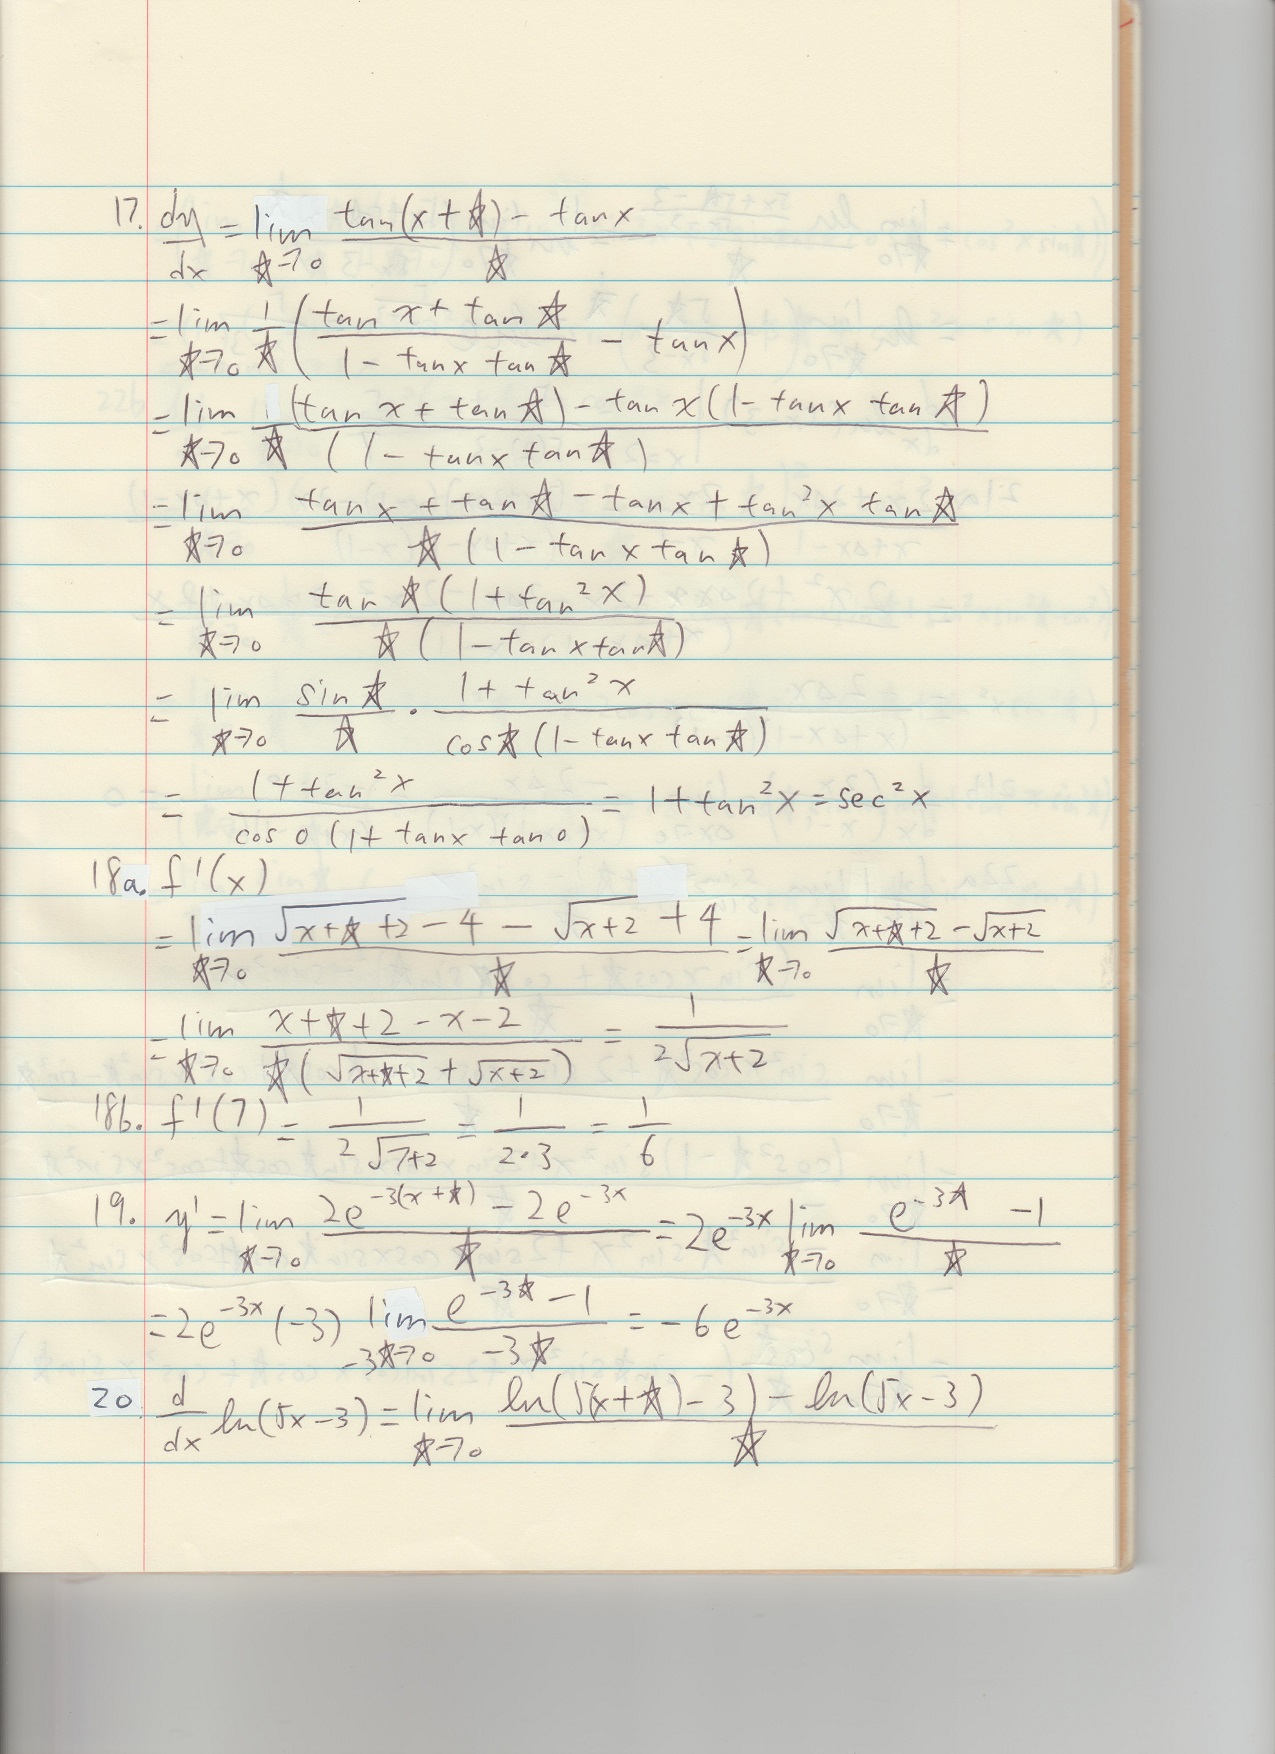 17. dy/dx = lim ☆→0 (tan(x + ☆) - tan x)/☆
= lim ☆→0 1/☆ ((tan x + tan ☆)/(1 - tan x tan ☆) - tan x)
= lim ☆→0 ((tan x + tan ☆) - tan x (1 - tan x tan ☆))/(☆ (1 - tan x tan ☆))
= lim ☆→0 (tan x + tan ☆ - tan x + tan² x tan ☆)/(☆ (1 - tan x tan ☆))
= lim ☆→0 (tan ☆ (1 + tan² x))/(☆ (1 - tan x tan ☆))
= lim ☆→0 (sin ☆)/☆ · (1 + tan² x)/(cos ☆ (1 - tan x tan ☆))
= (1 + tan² x)/(cos 0 (1 + tan x tan 0)) = 1 + tan² x = sec² x
18a. f'(x)
= lim ☆→0 (√(x+☆+2) - 4 - √(x+2) + 4)/☆ = lim ☆→0 (√(x+☆+2) - √(x+2))/☆
= lim ☆→0 (x + ☆ + 2 - x - 2)/(☆ (√(x+☆+2) + √(x+2))) = 1/(2√(x+2))
18b. f'(7) = 1/(2√(7+2)) = 1/(2·3) = 1/6
19. y' = lim ☆→0 (2e^(-3(x+☆)) - 2e^(-3x))/☆ = 2e^(-3x) lim ☆→0 (e^(-3☆) - 1)/☆
= 2e^(-3x) (-3) lim -3☆→0 (e^(-3☆) - 1)/(-3☆) = -6e^(-3x)
20. d/dx ln(5x - 3) = lim ☆→0 (ln(5(x+☆) - 3) - ln(5x - 3))/☆